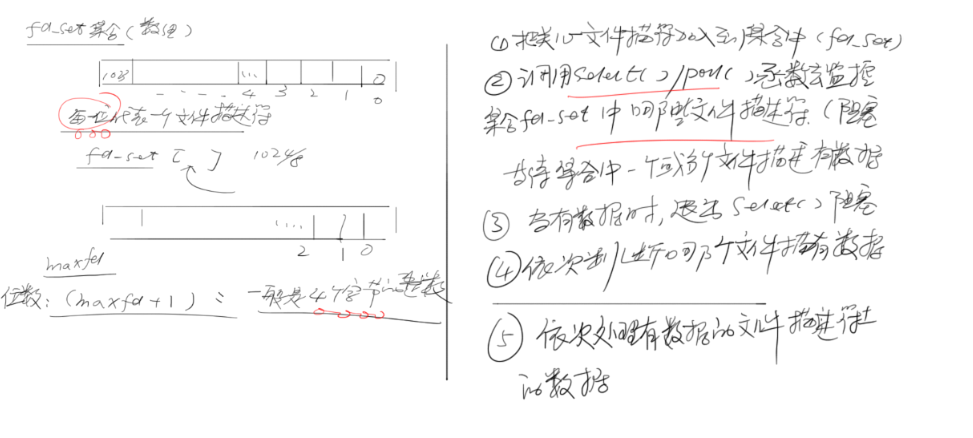 fd_set 集合(数组)
1023 ... 4 3 2 1 0
0
每位代表一个文件描述符
fd_set [ ] 1024/8
.... 2 1 0
maxfd
位数: (maxfd+1) 一般是4个字节的整数
① 把关心文件描述符加入到集合中(fd_set)
② 调用select()/poll()函数去监控
集合fd_set中的哪些文件描述符(阻塞
等待集合中一个或多个文件描述有数据
③ 当有数据时,退出select()阻塞
④ 依次判断哪个文件描有数据
⑤ 依次处理有数据的文件描述符上
的数据